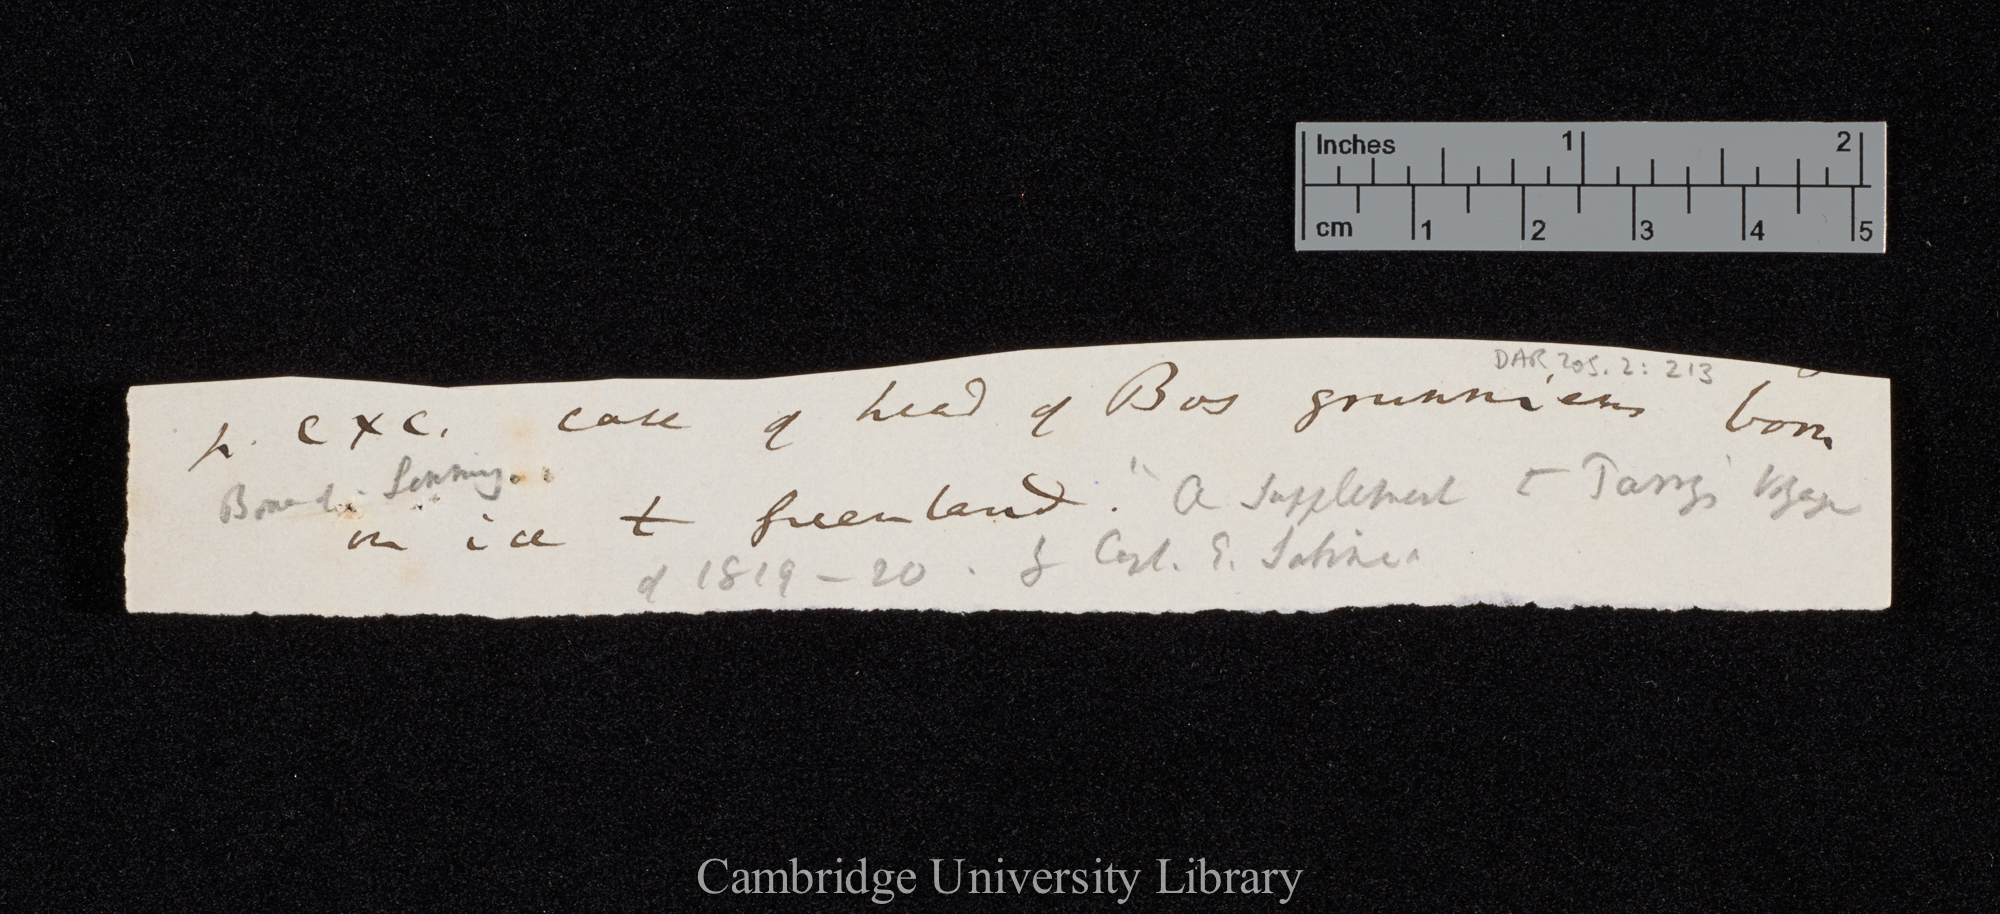 Inches 1 2
cm 1 2 3 4 5
DAR 205. 2: 213
p. cxc. case of head of Bos grunniens born
on ice to Greenland. "A Supplement to Parrys' Voyage
of 1819–20. by Capt. E. Sabine.
Cambridge University Library